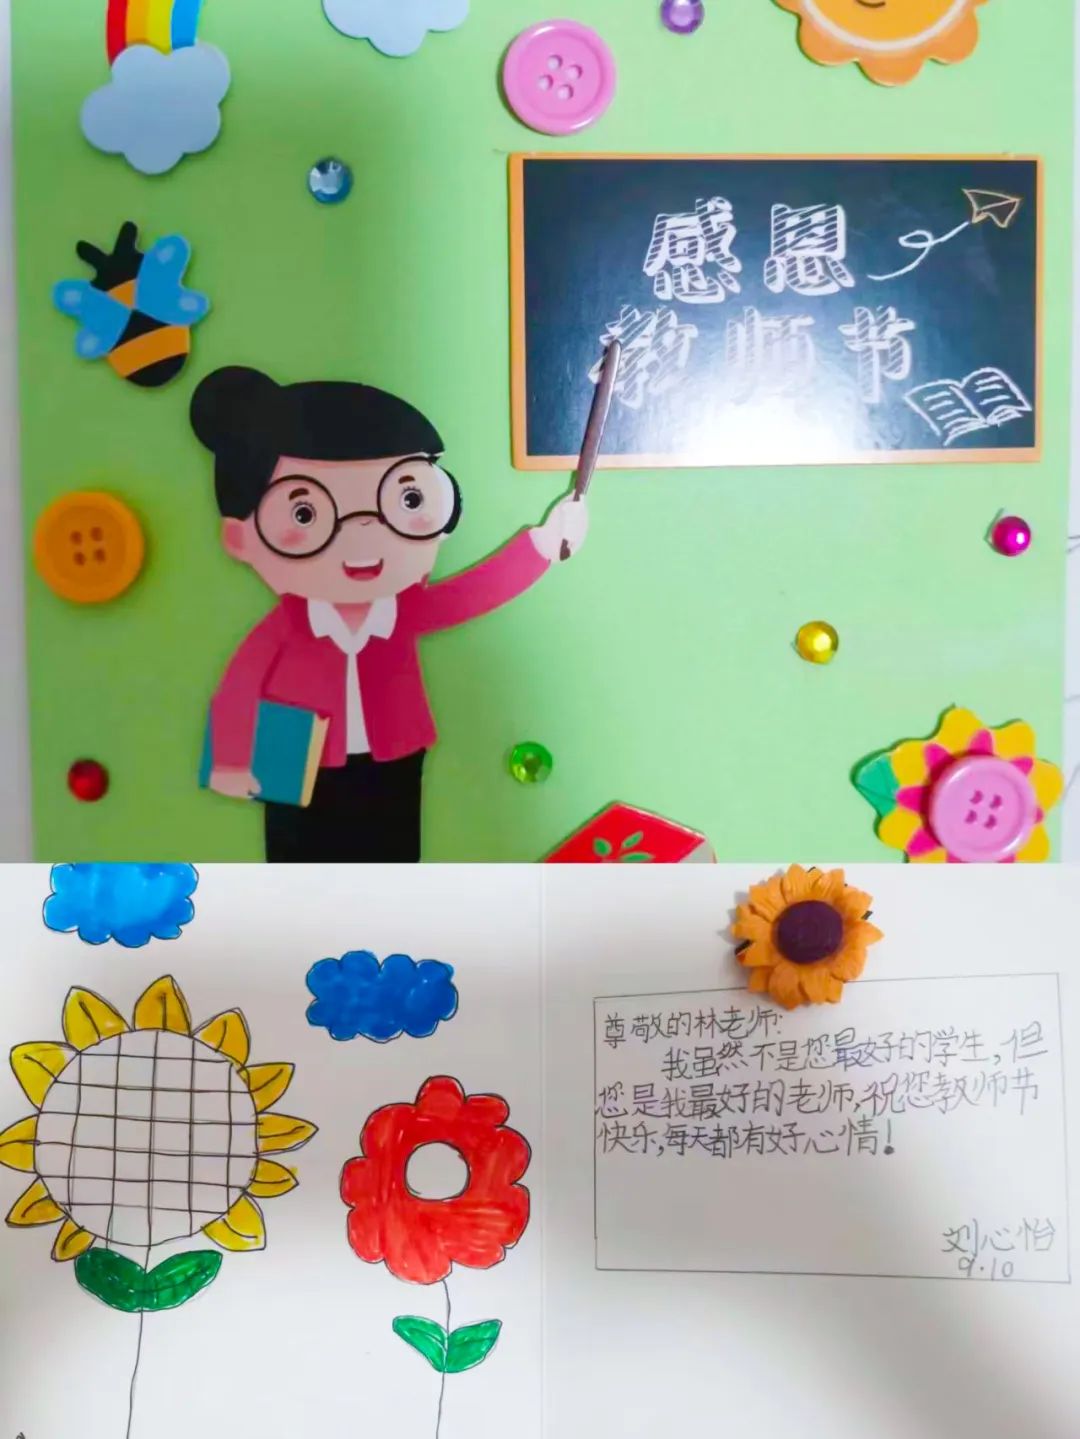 感恩
教师节
尊敬的林老师:
我虽然不是您最好的学生,但
您是我最好的老师,祝您教师节
快乐,每天都有好心情!
刘心怡
9.10